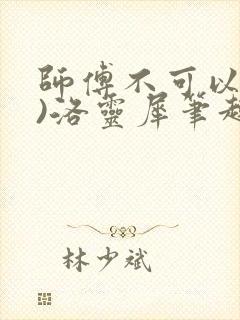 師傅不可以
)洛靈犀筆趣
林少斌